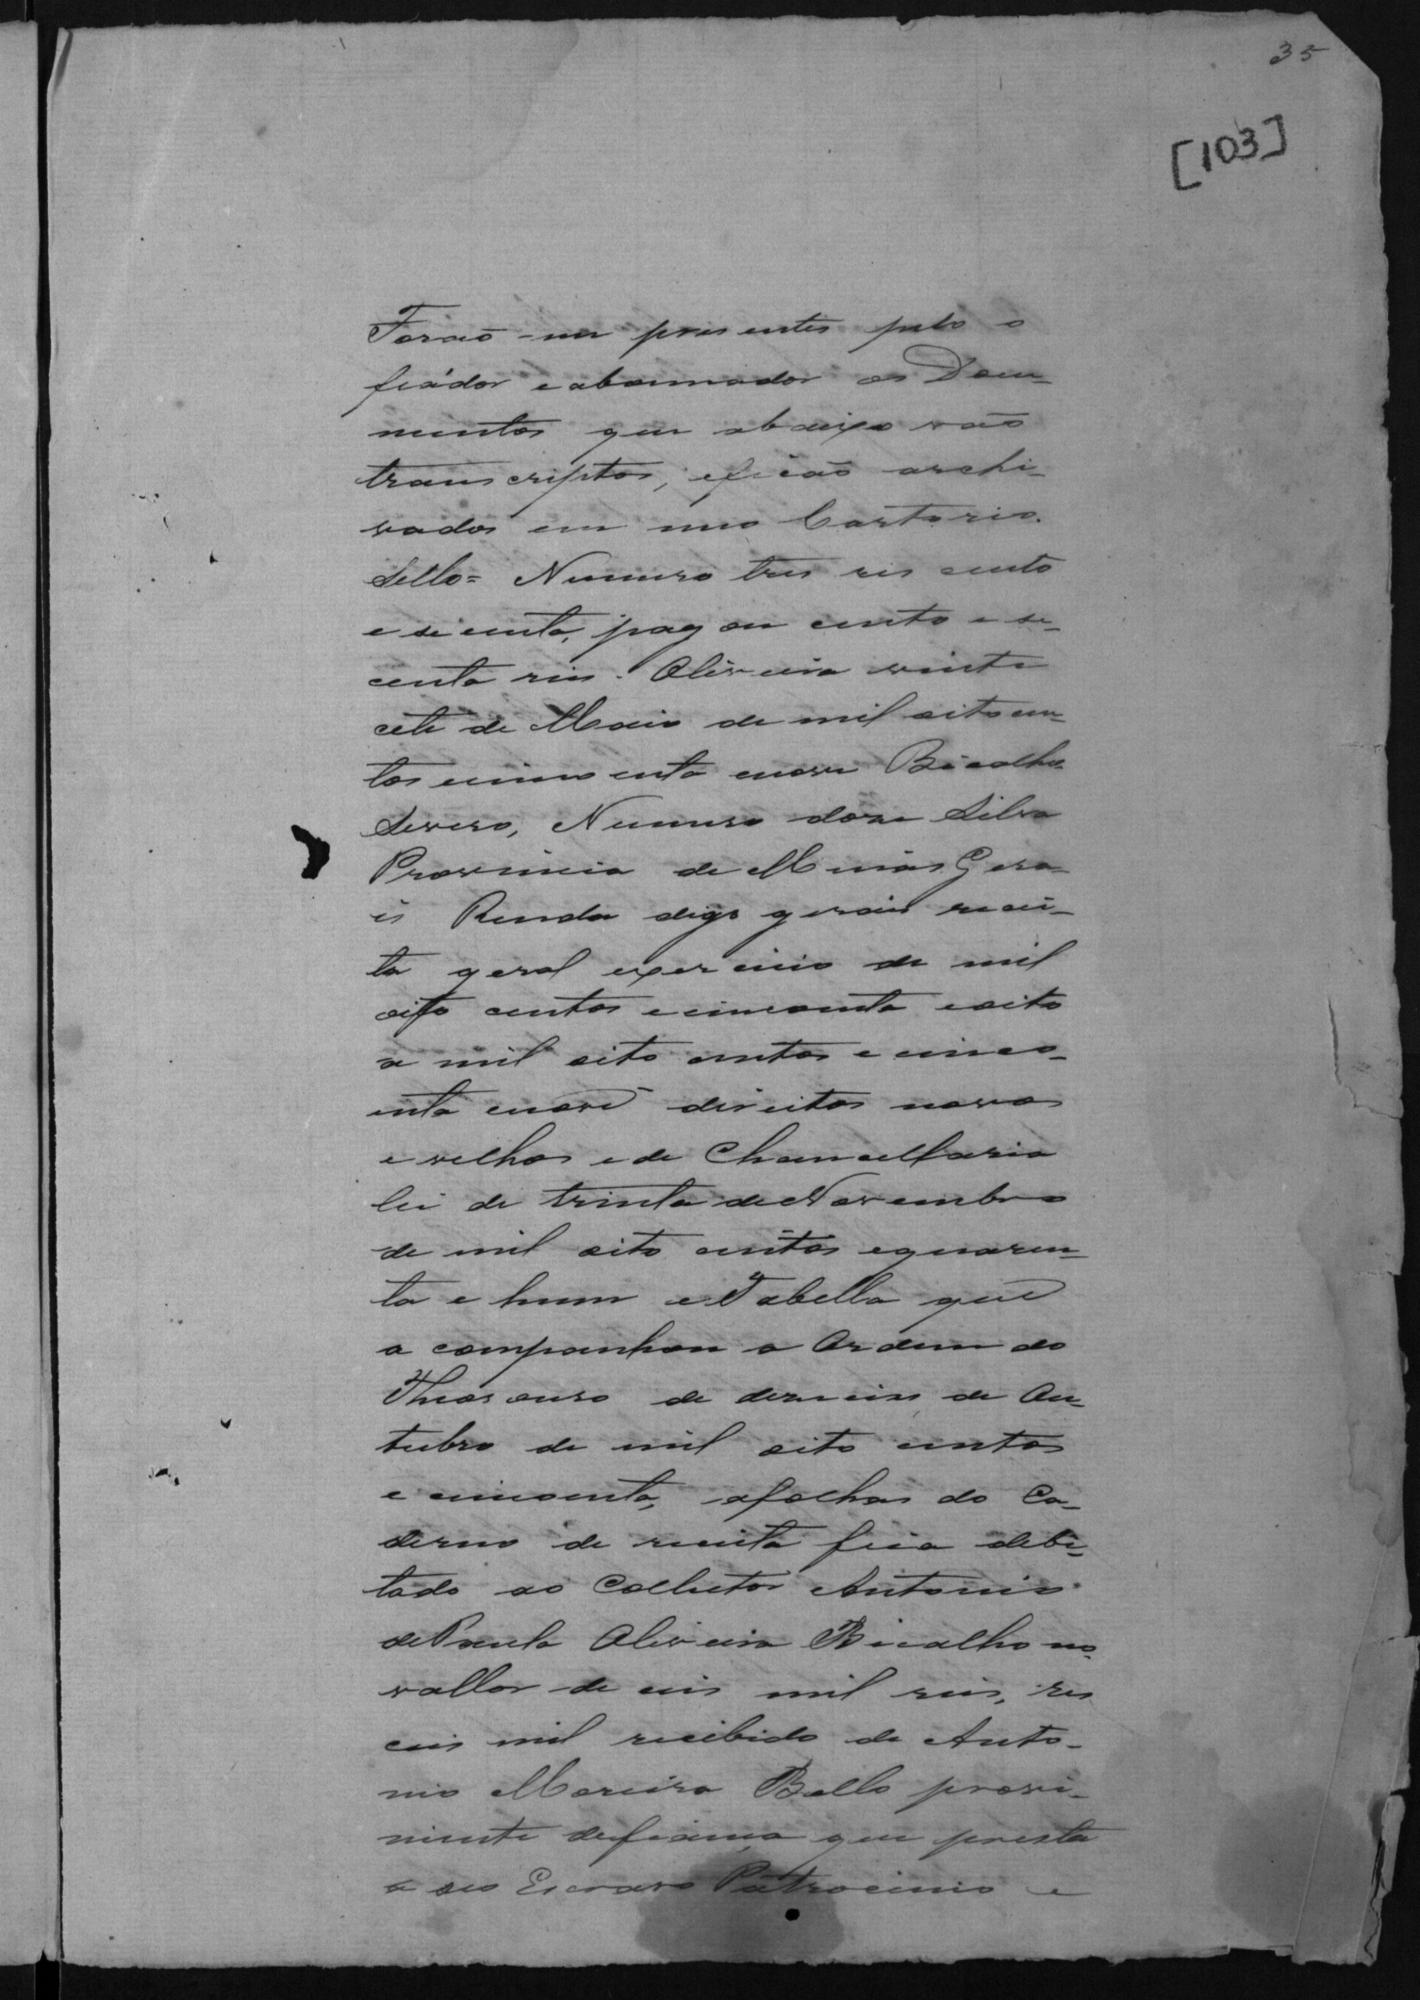 35
[103]
Forão-me presentes pelo o
fiádor e abonnador os Docu-
mentos que abaixo vão
transcriptos, eficão archi-
vados em meo Cartorio.
Sello= Numero tres reis cento
e secenta, pagou cento e se-
centa reis. Oliveira vinte
cete de Maio de mil oitocen-
tos cincoenta enove Bicalho
Severo, Numero doze Silva
Provincia de Minas Gera-
is Renda digo geraes recei-
ta geral exercicio de mil
oito centos e cincoenta eoito
a mil oito centos e cinco-
enta enove direitos novos
e velhos e de Chancellaria
lei de trinta de Novembro
de mil oito centos equaren-
ta e hum e Tabella que
a companhou a Ordem do
Thesouro de dezeceis de Ou-
tubro de mil oito centos
e cincoenta, afolhas do Ca-
derno de receita fica debi-
tado ao Collector Antonio
de Paula Oliveira Bicalho no
vallor de ceis mil reis, res
ceis mil recibido de Anto-
nio Moreira Bello provi-
niente defiança que presta
a seo Escravo Patrocinio e